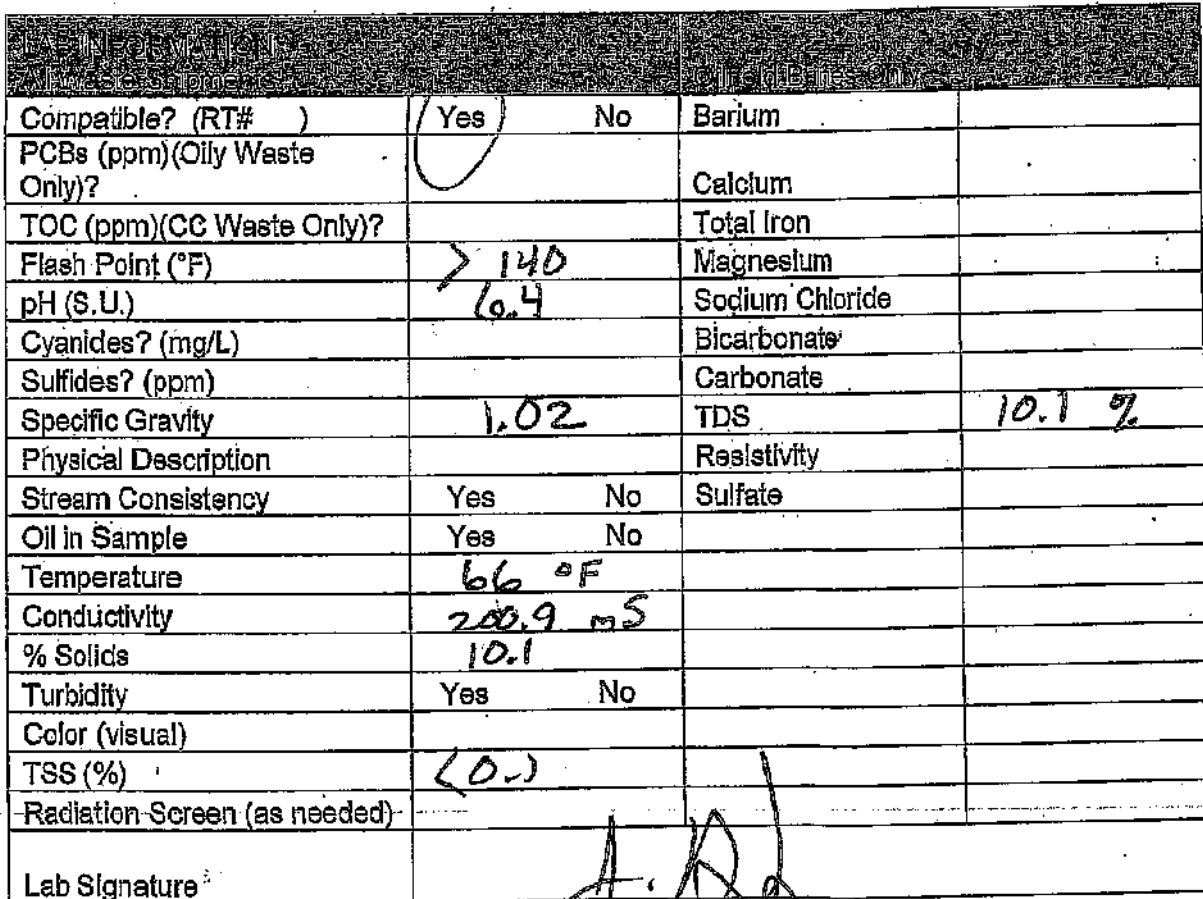 LAB INFORMATION
All Waste Shipments Oilfield Brines Only
Compatible? (RT# ) Yes No Barium
PCBs (ppm)(Oily Waste
Only)? Calcium
TOC (ppm)(CC Waste Only)? Total Iron
Flash Point (°F) > 140 Magnesium
pH (S.U.) 6.4 Sodium Chloride
Cyanides? (mg/L) Bicarbonate
Sulfides? (ppm) Carbonate
Specific Gravity 1.02 TDS 10.1 %
Physical Description Resistivity
Stream Consistency Yes No Sulfate
Oil in Sample Yes No
Temperature 66 °F
Conductivity 200.9 mS
% Solids 10.1
Turbidity Yes No
Color (visual)
TSS (%) <0.1
Radiation Screen (as needed)
Lab Signature